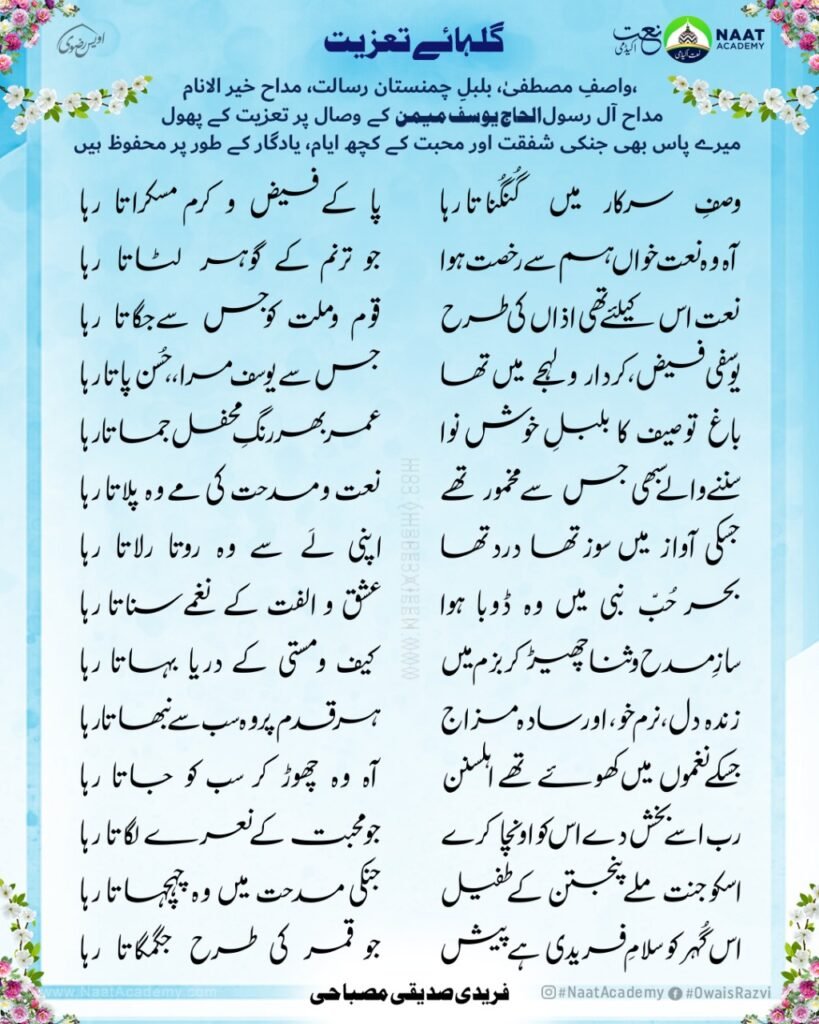 اویس رضوی
گلہائے تعزیت
نعت اکیڈمی
NAAT ACADEMY
واصفِ مصطفیٰ، بلبلِ چمنستان رسالت، مداح خیر الانام،
مداح آل رسول الحاج یوسف میمن کے وصال پر تعزیت کے پھول
میرے پاس بھی جنکی شفقت اور محبت کے کچھ ایام، یادگار کے طور پر محفوظ ہیں
وصفِ سرکار میں گُنگُناتا رہا پا کے فیض و کرم مسکراتا رہا
آہ وہ نعت خواں ہم سے رخصت ہوا جو ترنم کے گوہر لٹاتا رہا
نعت اس کیلئے تھی اذاں کی طرح قوم و ملت کو جس سے جگاتا رہا
یوسفی فیض، کردار و لہجے میں تھا جس سے یوسف مرا،، حُسن پاتا رہا
باغِ توصیف کا بلبلِ خوش نوا عمر بھر رنگِ محفل جماتا رہا
سننے والے سبھی جس سے مخمور تھے نعت و مدحت کی مے وہ پلاتا رہا
جسکی آواز میں سوز تھا درد تھا اپنی لَے سے وہ روتا رلاتا رہا
بحرِ حُبِّ نبی میں وہ ڈوبا ہوا عشق و الفت کے نغمے سناتا رہا
سازِ مدح و ثنا چھیڑ کر بزم میں کیف و مستی کے دریا بہاتا رہا
زندہ دل، نرم خو، اور سادہ مزاج ہر قدم پر وہ سب سے نبھاتا رہا
جسکے نغموں میں کھوئے تھے اہلسنن آہ وہ چھوڑ کر سب کو جاتا رہا
رب اسے بخش دے اس کو اونچا کرے جو محبت کے نعرے لگاتا رہا
اسکو جنت ملے پنجتن کے طفیل جنکی مدحت میں وہ چہچہاتا رہا
اس گُہر کو سلامِ فریدی ہے پیش جو قمر کی طرح جگمگاتا رہا
www.NaatAcademy.com
فریدی صدیقی مصباحی
#NaatAcademy #OwaisRazvi